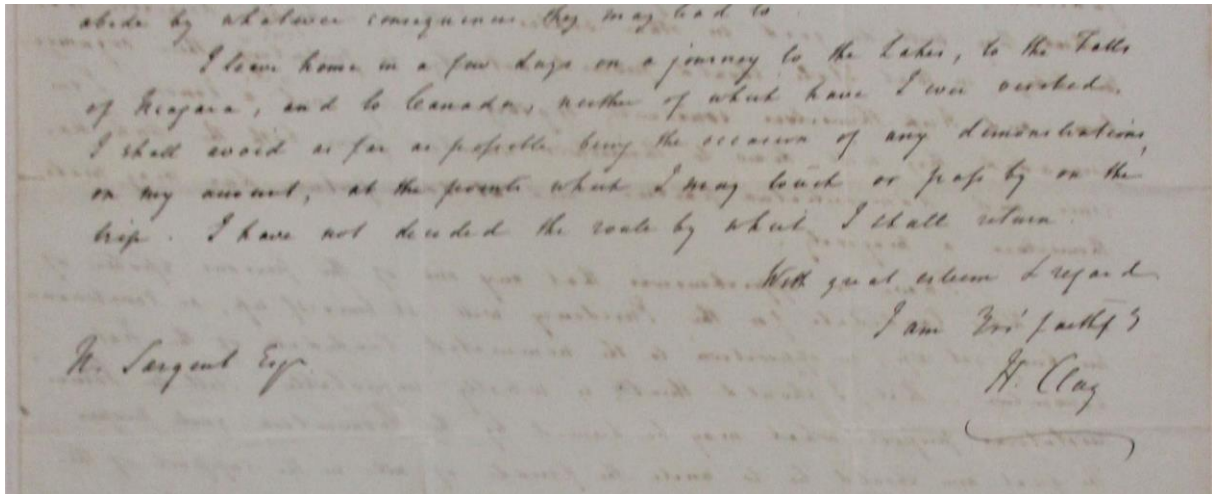 abide by whatever consequences they may lead to.
I leave home in a few days on a journey to the Lakes, to the Falls
of Niagara, and to Canada, neither of which have I ever visited.
I shall avoid as far as possible being the occasion of any demonstrations,
on my account, at the points which I may touch or pass by on the
trip. I have not decided the route by which I shall return.
With great esteem & regard
I am Yrs' faithfy
N. Sargent Esqr
H. Clay